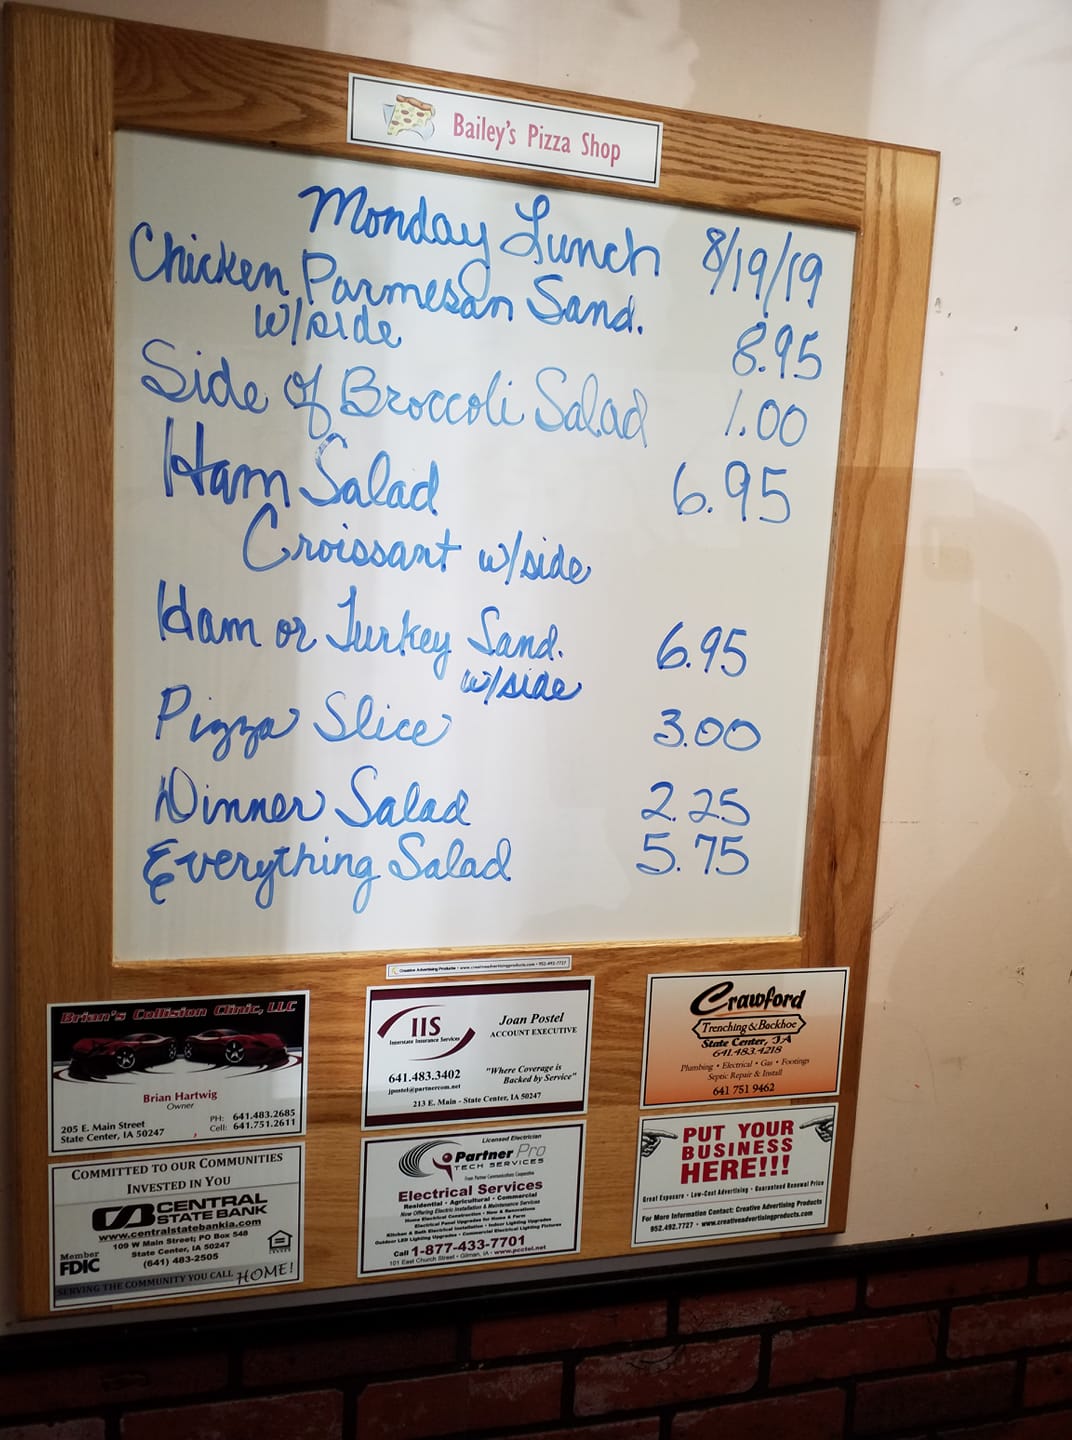 Bailey's Pizza Shop
Monday Lunch 8/19/19
Chicken Parmesan Sand.
w/side 8.95
Side of Broccoli Salad 1.00
Ham Salad 6.95
Croissant w/side
Ham or Turkey Sand. 6.95
w/side
Pizza Slice 3.00
Dinner Salad 2.25
Everything Salad 5.75
Creative Advertising Products • www.creativeadvertisingproducts.com • 952-492-7727
Brian's Collision Clinic, LLC
Brian Hartwig
Owner
PH: 641.483.2685
Cell: 641.751.2611
205 E. Main Street
State Center, IA 50247
IIS
Interstate Insurance Services
Joan Postel
ACCOUNT EXECUTIVE
641.483.3402
jpostel@partnercom.net
"Where Coverage is
Backed by Service"
213 E. Main - State Center, IA 50247
Crawford
Trenching & Backhoe
State Center, IA
641.483.4218
Plumbing • Electrical • Gas • Footings
Septic Repair & Install
641 751 9462
COMMITTED TO OUR COMMUNITIES
INVESTED IN YOU
CENTRAL
STATE BANK
www.centralstatebankia.com
109 W Main Street; PO Box 548
State Center, IA 50247
(641) 483-2505
Member
FDIC
SERVING THE COMMUNITY YOU CALL HOME!
Licensed Electrician
Partner Pro
TECH SERVICES
From Partner Communications Cooperative
Electrical Services
Residential • Agricultural • Commercial
Now Offering Electric Installation & Maintenance Services
Home Electrical Construction - New & Renovations
Electrical Panel Upgrades for Home & Farm
Kitchen & Bath Electrical Installation • Indoor Lighting Upgrades
Outdoor LED Lighting Upgrades • Commercial Electrical Lighting Fixtures
Call 1-877-433-7701
101 East Church Street • Gilman, IA • www.pcctel.net
PUT YOUR
BUSINESS
HERE!!!
Great Exposure • Low-Cost Advertising • Guaranteed Renewal Price
For More Information Contact: Creative Advertising Products
952.492.7727 • www.creativeadvertisingproducts.com